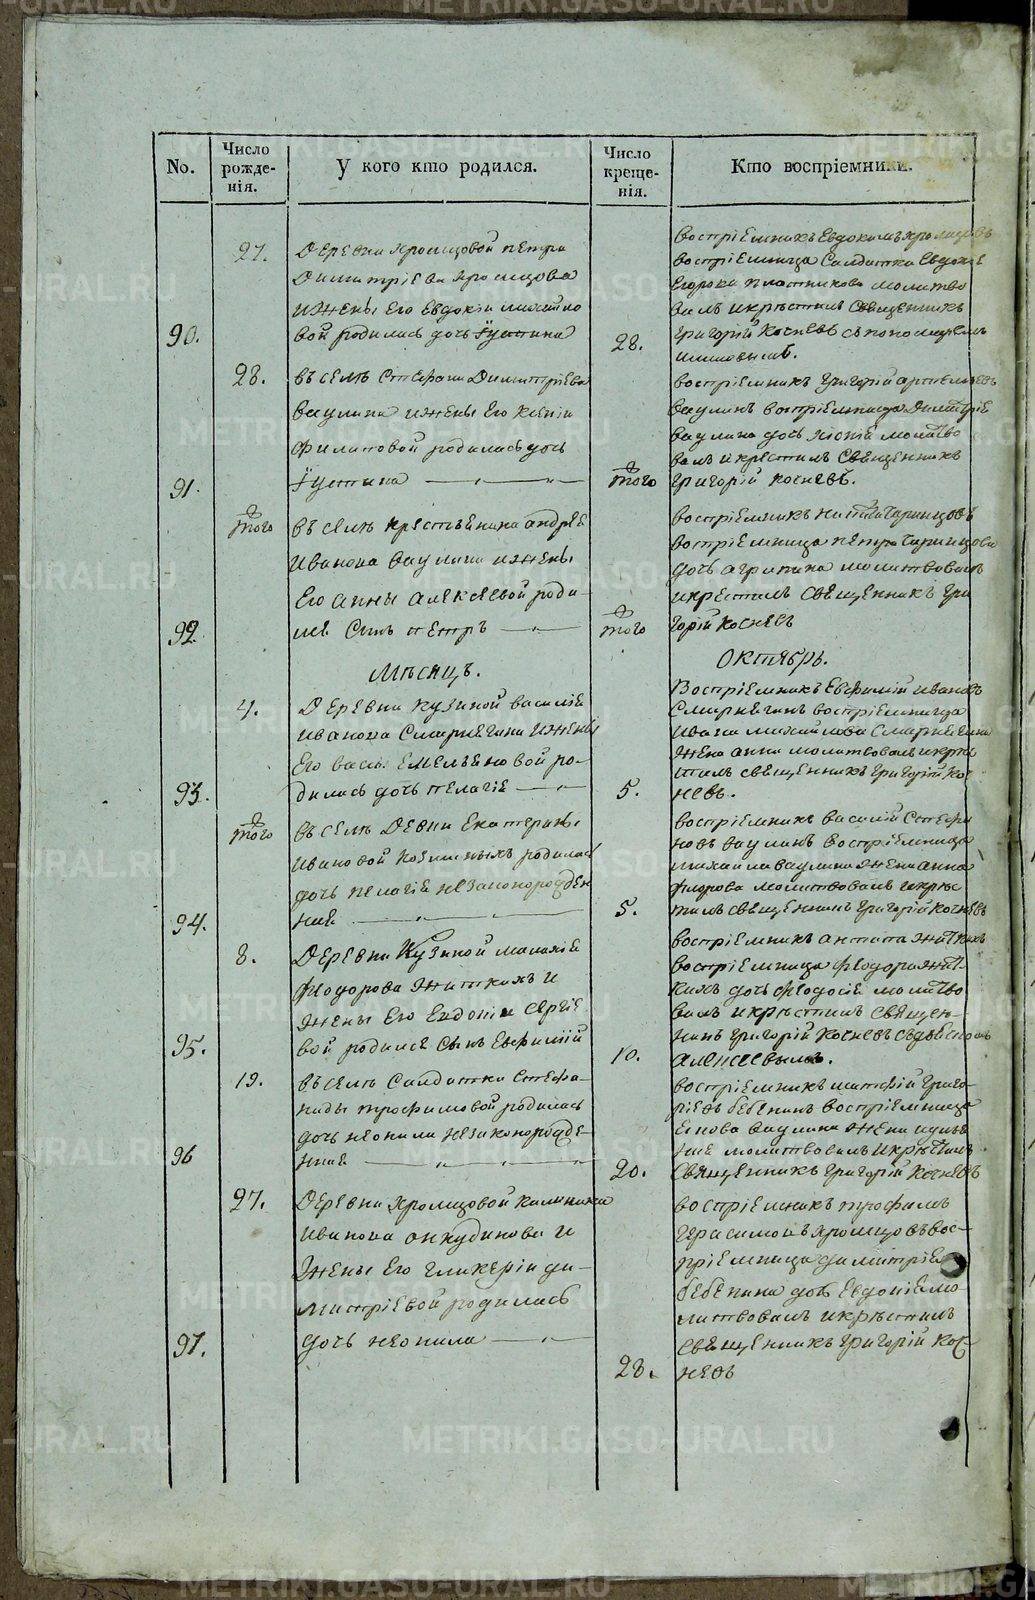 No.
Число
рожде-
нія.
У кого кто родился.
Число
креще-
нія.
Кто воспріемники.
90.
27.
Деревни Хромцовой Петра
Димитріева Хромцова
и жены его Евдокіи Михайло
вой родилась дочь Іустина
28.
воспріемникъ Евдокимъ Хромцовъ
воспріемница Салдатка Евдокіе
Егорова Плотникова молитво
валъ и крѣстилъ Священникъ
Григорій Косневъ съ пономаремъ
91.
28.
въ селѣ Стефана Димитріева
Ваулина и жены его Ксеніи
Филиповой родилась дочь
Іустина
того
воспріемникъ Григорій
Ваулинъ воспріемница Димитріе
Ваулина дочь молитво
валъ и крестилъ Священникъ
Григорій Косневъ.
92.
того
въ селѣ крестьенина Андрее
Иванова Ваулина и жены
Его Анны Алексеевой роди-
лсе Сынъ Петръ
того
воспріемникъ
воспріемница Петра
дочь Агрипина молитвовалъ
и крестилъ Священникъ Гри
горій Косневъ
Мѣсяцъ.
Октябрь.
93.
4.
Деревни Кузиной Василіе
Иванова Смарегина и жены
Его Васы Емельеновой ро-
дилась дочь Пелагіе
5.
Воспріемникъ Евфимій Ивановъ
воспріемница
Ивана Михайлова
жена Анна молитвовалъ и крѣ
стилъ священникъ Григорій Кос
невъ.
94.
того
въ селѣ Девки Екатерины
Ивановой родилась
дочь Пелагіе незаконорожден
ние
5.
воспріемникъ Василій Стефа
новъ Ваулинъ воспріемница
Михаила Ваулина жена Анна
Фіорова молитвовалъ и крѣс
тилъ священникъ Григорій Коснѣвъ
95.
8.
Деревни Кузиной Малахіе
Феодорова Житкихъ и
жены Его Евдокіи Сергіе
вой родилсе Сынъ Евфимій
10.
воспріемникъ Антипа Житкихъ
воспріемница Феодора Жит
кихъ дочь Феодосіе молитво
валъ и крѣстилъ Священ-
никъ Григорій Коснѣвъ съ
Алексеевымъ.
96
19.
въ селѣ Салдатки Стефа-
ниды Трофимовой родилась
дочь Неонила незаконорожде-
ние
20.
воспріемникъ Матфій Григо-
рьевъ Бебенинъ воспріемница
Ваулина жена
молитвовалъ и крѣстилъ
Священникъ Григорій Коснѣвъ
97.
27.
Деревни Хромцовой Калиника
Иванова Анкудинова и
жены Его Гликеріи Ди-
митріевой родилась
дочь Неонила
28.
воспріемникъ Трофимъ
Герасимовъ Хромцовъ вос-
пріемница Димитріе
Бебенина дочь Евдокіе мо
литвовалъ и крѣстилъ
священникъ Григорій Кос-
невъ
METRIKI.GASO-URAL.RU